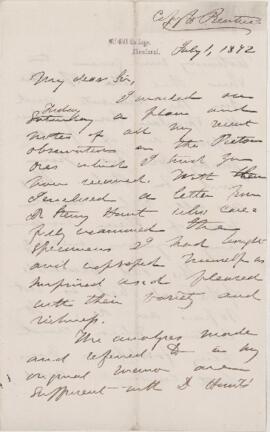 McGill College,
Montreal.
July 1, 1872
My dear Sir,
I mailed on
Friday
Saturday a plan and
notes of all my recent
observations on the Pictou
ores which I trust you
have received. With them
I inclosed a letter from
Dr Sterry Hunt who care-
fully examined the
specimens I had brought
and expressed himself as
surprised and pleased
with their variety and
richness.
The analyses made
and referred to in my
original memoir are
sufficient with Dr Hunt's